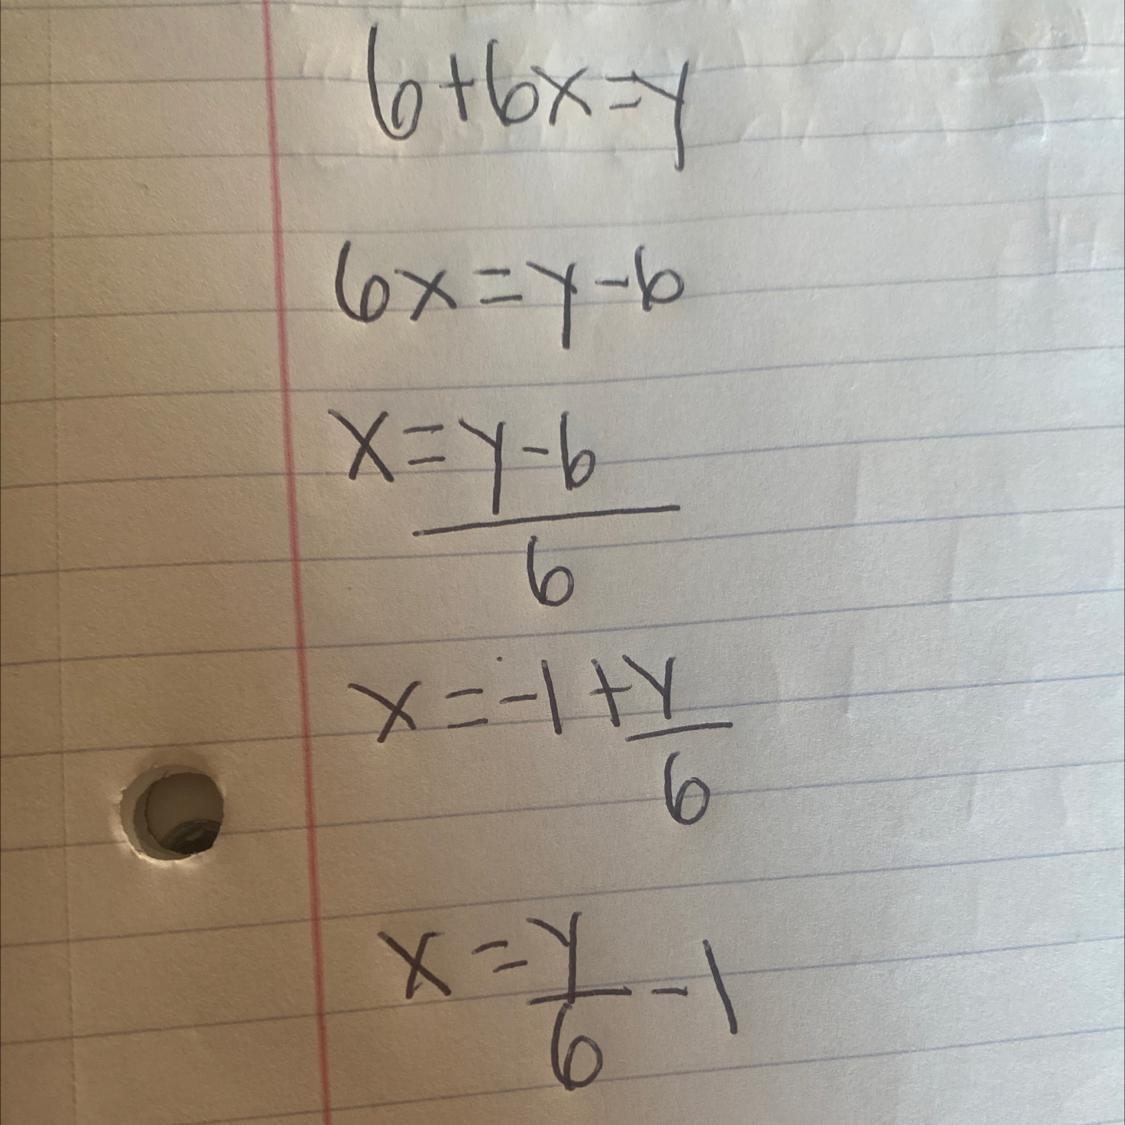 6+6x=y
6x=y-6
x=y-6
6
x=-1+y
6
x=y-1
6